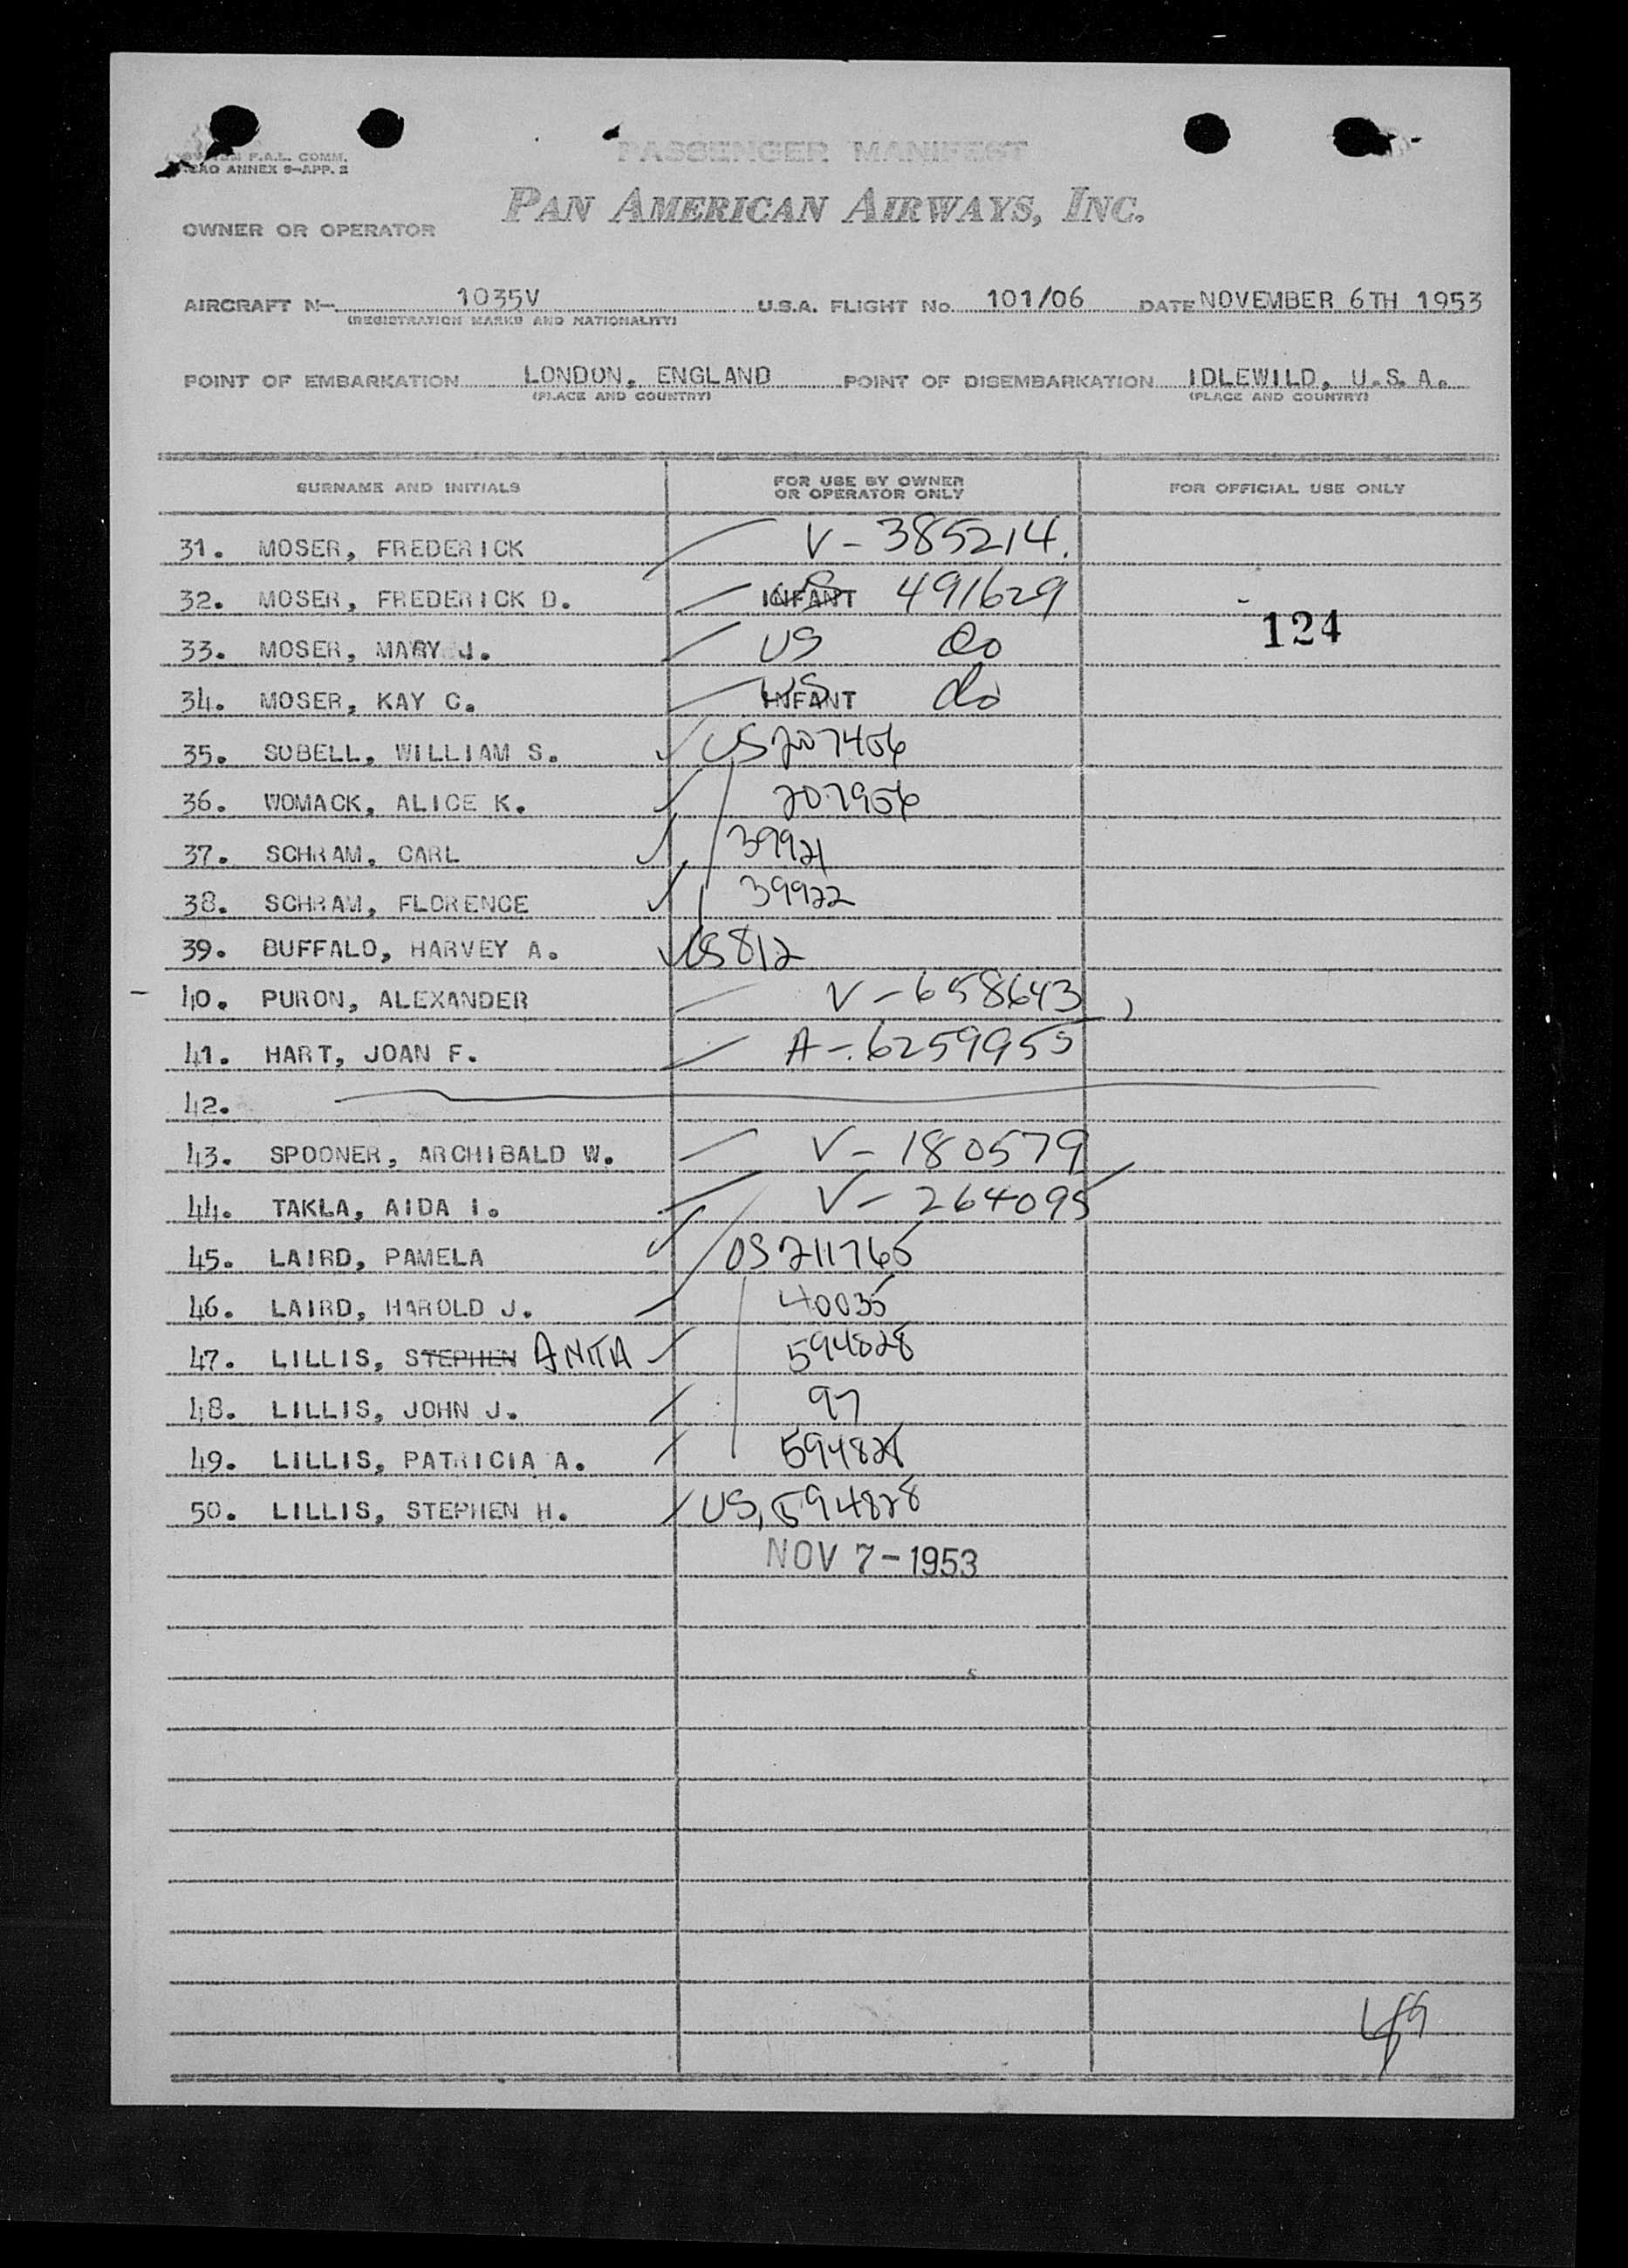 F.A.L. COMM.
ICAO ANNEX 9-APP. 2
PASSENGER MANIFEST
PAN AMERICAN AIRWAYS, INC.
OWNER OR OPERATOR
AIRCRAFT N- 1035V U.S.A. FLIGHT No. 101/06 DATE NOVEMBER 6TH 1953
(REGISTRATION MARKS AND NATIONALITY)
POINT OF EMBARKATION LONDON, ENGLAND POINT OF DISEMBARKATION IDLEWILD, U.S.A.
(PLACE AND COUNTRY) (PLACE AND COUNTRY)
SURNAME AND INITIALS FOR USE BY OWNER OR OPERATOR ONLY FOR OFFICIAL USE ONLY
31. MOSER, FREDERICK V-385214.
32. MOSER, FREDERICK D. INFANT US 491629
124
33. MOSER, MARY J. US do
34. MOSER, KAY C. INFANT US do
35. SOBELL, WILLIAM S. US 207456
36. WOMACK, ALICE K. 207956
37. SCHRAM, CARL 39921
38. SCHRAM, FLORENCE 39922
39. BUFFALO, HARVEY A. US 812
40. PURON, ALEXANDER V-658643
41. HART, JOAN F. A-6259955
42.
43. SPOONER, ARCHIBALD W. V-180579
44. TAKLA, AIDA I. V-264095
45. LAIRD, PAMELA US 211765
46. LAIRD, HAROLD J. 40035
47. LILLIS, STEPHEN ANITA 594828
48. LILLIS, JOHN J. 97
49. LILLIS, PATRICIA A. 594828
50. LILLIS, STEPHEN H. US, 594828
NOV 7-1953